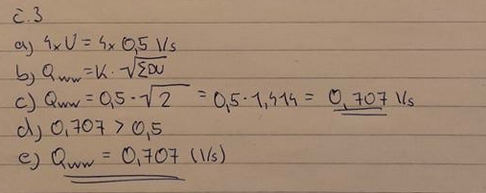 č.3
a) 4xU = 4x 0,5 l/s
b) Qww = K · √ΣDU
c) Qww = 0,5 · √2 = 0,5 · 1,414 = 0,707 l/s
d) 0,707 > 0,5
e) Qww = 0,707 (l/s)